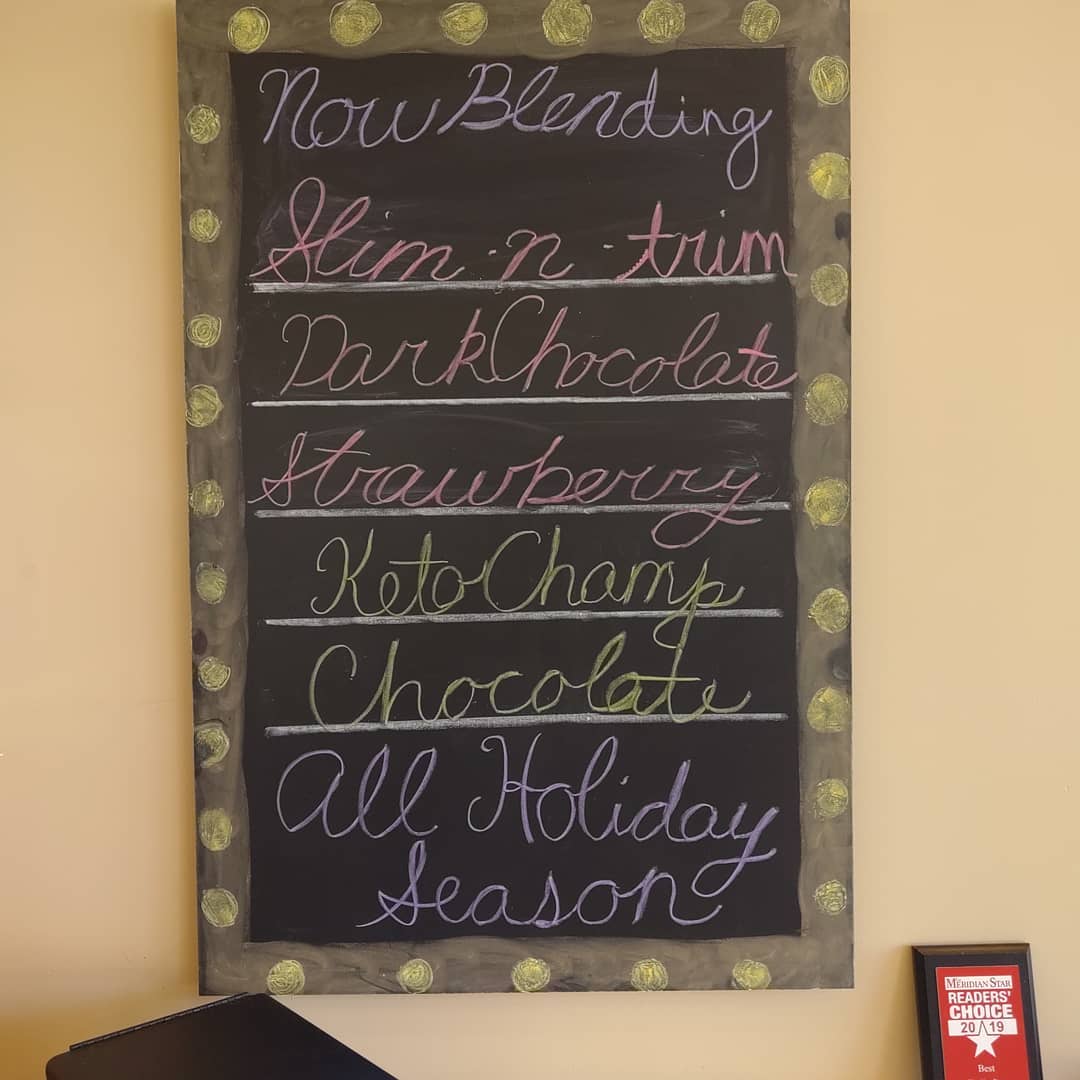 Now Blending
Slim-n-trim
Dark Chocolate
Strawberry
Keto Champ
Chocolate
All Holiday
Season
MERIDIAN STAR
READERS'
CHOICE
2019
Best